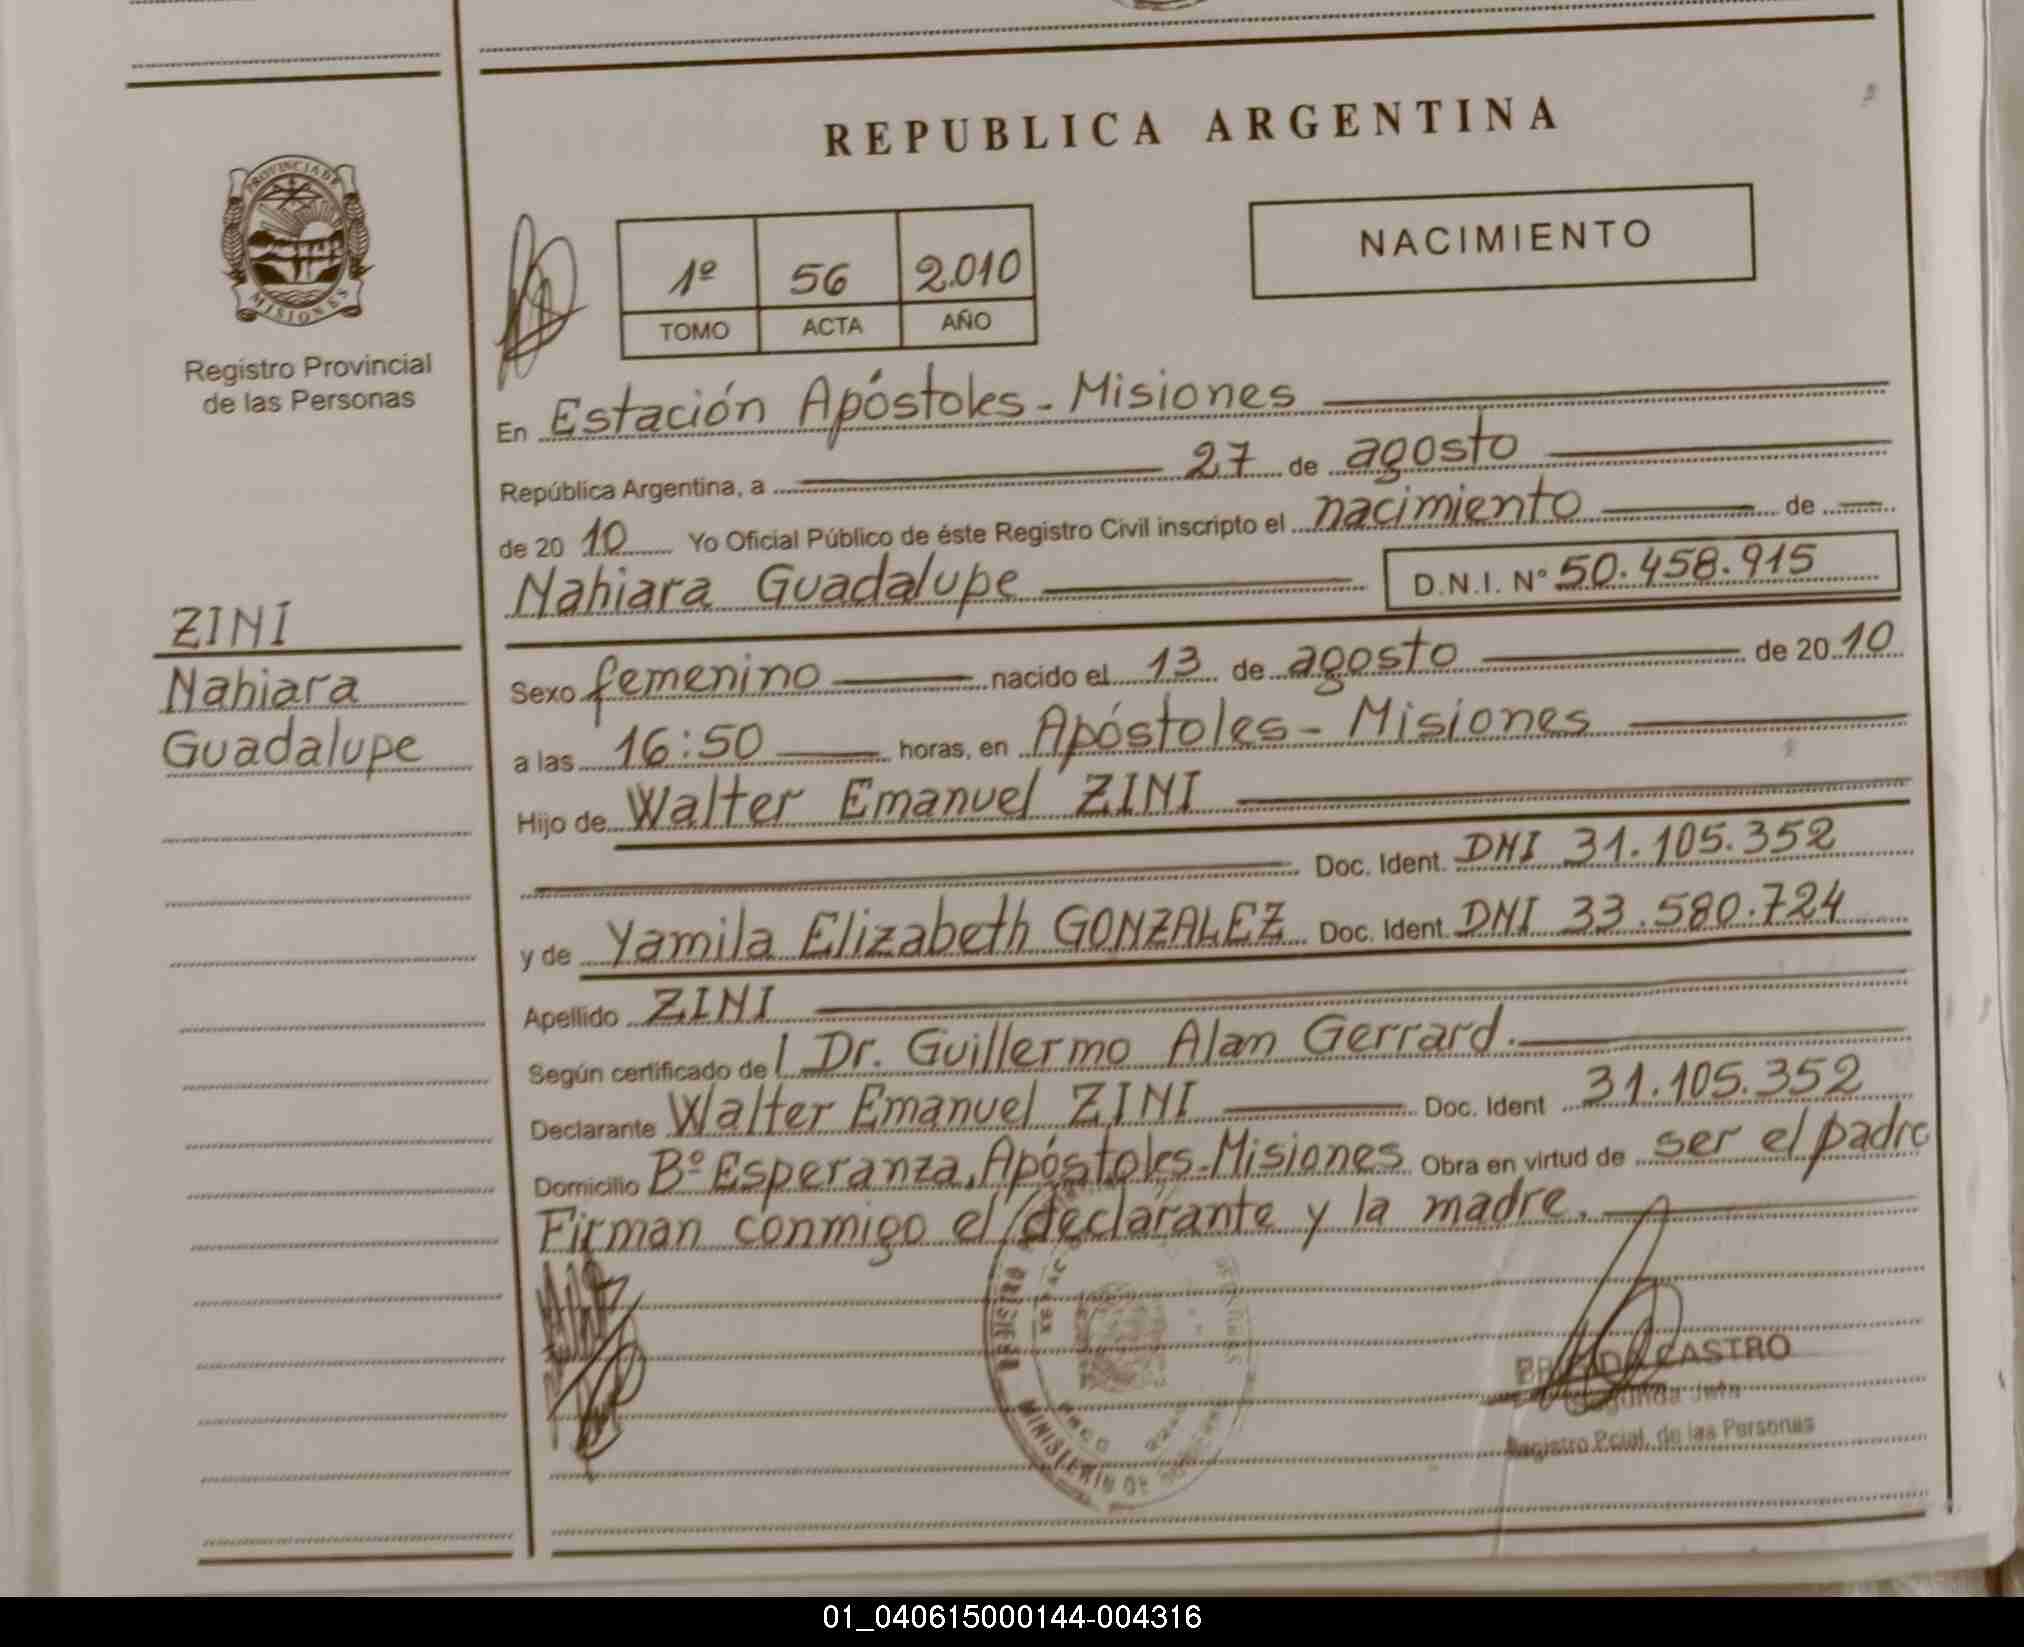 REPUBLICA ARGENTINA
PROVINCIA DE
MISIONES
Registro Provincial
de las Personas
1º 56 2.010
TOMO ACTA AÑO
NACIMIENTO
En Estación Apóstoles - Misiones
República Argentina, a 27 de agosto
de 20 10 Yo Oficial Público de éste Registro Civil inscripto el nacimiento de
Nahiara Guadalupe D.N.I. Nº 50.458.915
ZINI
Nahiara
Guadalupe
Sexo femenino nacido el 13 de agosto de 20 10
a las 16:50 horas, en Apóstoles - Misiones
Hijo de Walter Emanuel ZINI
Doc. Ident. DNI 31.105.352
y de Yamila Elizabeth GONZALEZ Doc. Ident. DNI 33.580.724
Apellido ZINI
Según certificado de Dr. Guillermo Alan Gerrard.
Declarante Walter Emanuel ZINI Doc. Ident 31.105.352
Domicilio Bº Esperanza, Apóstoles - Misiones Obra en virtud de ser el padre
Firman conmigo el declarante y la madre.
MINISTERIO DE
CASTRO
Segunda Jefa
Registro Pcial. de las Personas
01_040615000144-004316